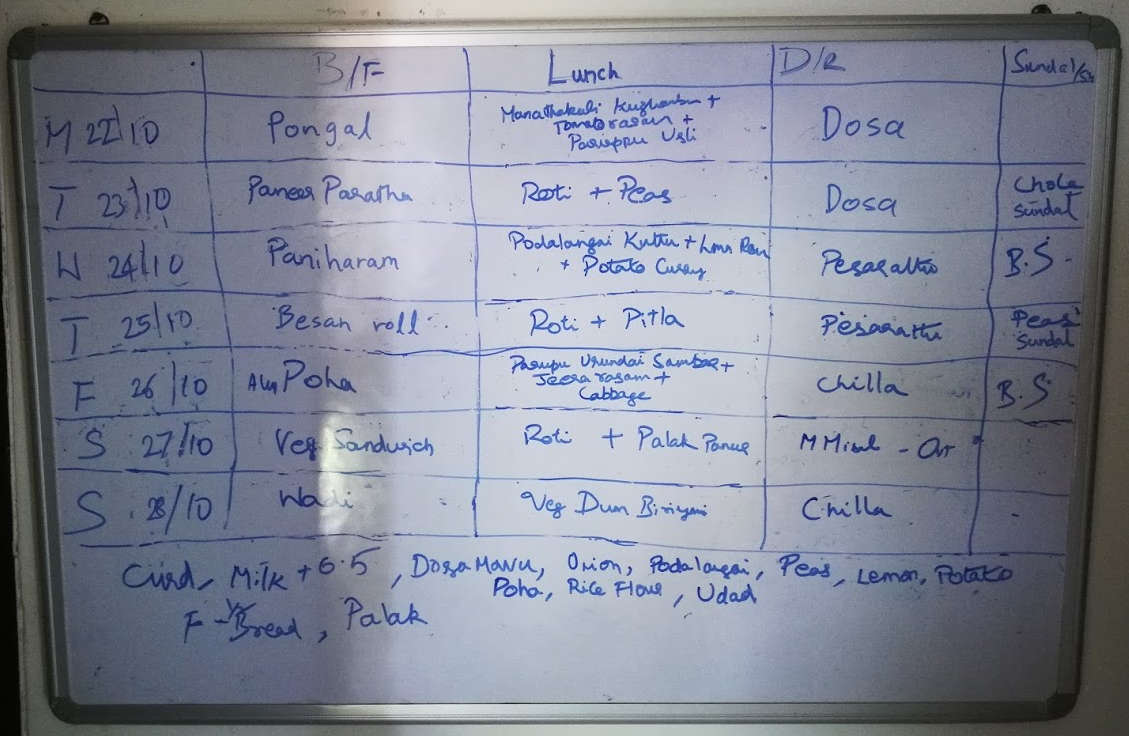 B/F Lunch D/R Sundal/
M 22/10 Pongal Manathakali Kuzhambu + Dosa
Tomato rasam +
Paruppu Usli
T 23/10 Paneer Paratha Roti + Peas Dosa Chola
Sundal
W 24/10 Paniharam Podalangai Kuttu + Lmn Rasm Pesarattu B.S.
+ Potato Curry
T 25/10 Besan roll Roti + Pitla Pesarattu Peas
Sundal
F 26/10 Alu Poha Parupu Urundai Sambar + Chilla B.S
Jeera rasam +
Cabbage
S 27/10 Veg Sandwich Roti + Palak Paneer M Misal - Or
S 28/10 Wadi Veg Dum Biriyani Chilla
Curd, Milk + 6.5, Dosa Mavu, Onion, Podalangai, Peas, Lemon, Potato
Poha, Rice Flour, Udad
F - Bread, Palak